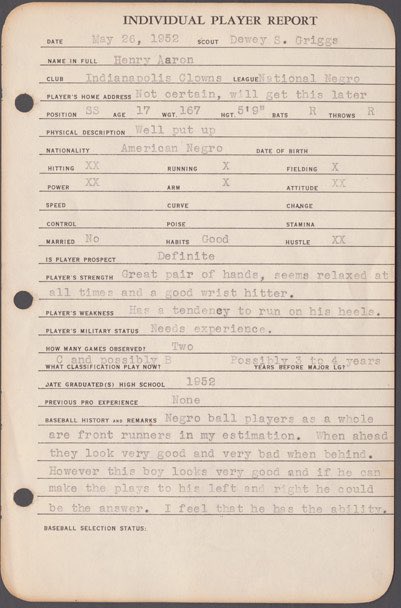 INDIVIDUAL PLAYER REPORT
DATE May 26, 1952 SCOUT Dewey S. Griggs
NAME IN FULL Henry Aaron
CLUB Indianapolis Clowns LEAGUE National Negro
PLAYER'S HOME ADDRESS Not certain, will get this later
POSITION SS AGE 17 WGT. 167 HGT. 5'9" BATS R THROWS R
PHYSICAL DESCRIPTION Well put up
NATIONALITY American Negro DATE OF BIRTH
HITTING XX RUNNING X FIELDING X
POWER XX ARM X ATTITUDE XX
SPEED CURVE CHANGE
CONTROL POISE STAMINA
MARRIED No HABITS Good HUSTLE XX
IS PLAYER PROSPECT Definite
PLAYER'S STRENGTH Great pair of hands, seems relaxed at
all times and a good wrist hitter.
PLAYER'S WEAKNESS Has a tendency to run on his heels.
PLAYER'S MILITARY STATUS Needs experience.
HOW MANY GAMES OBSERVED? Two
C and possibly B Possibly 3 to 4 years
WHAT CLASSIFICATION PLAY NOW? YEARS BEFORE MAJOR LG?
DATE GRADUATED(S) HIGH SCHOOL 1952
PREVIOUS PRO EXPERIENCE None
BASEBALL HISTORY AND REMARKS Negro ball players as a whole
are front runners in my estimation. When ahead
they look very good and very bad when behind.
However this boy looks very good and if he can
make the plays to his left and right he could
be the answer. I feel that he has the ability.
BASEBALL SELECTION STATUS: